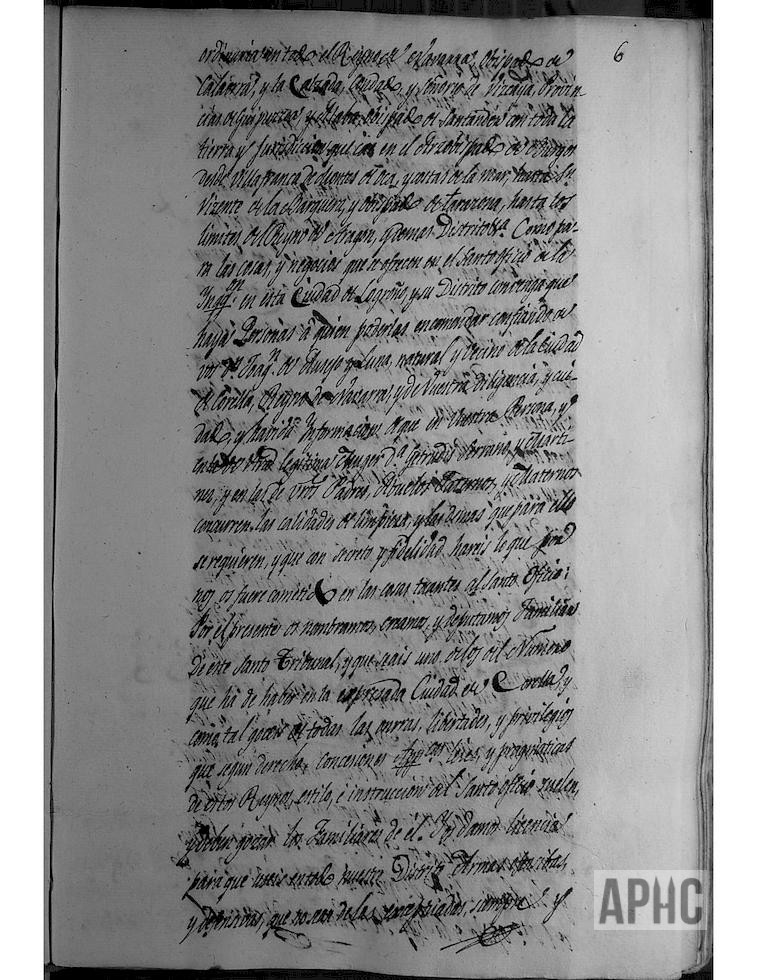 6
ordinaria en todo el Reyno de Navarra, Obispado de
Calaorra, y la Calzada, Ciudad, y Señorio de Vizcaya, Provin
cias de Guipuzcoa y Alaba, obispado de Santander con toda la
tierra y Jurisdicion que cae en el Arzobispado de Burgos
desde Villafranca de Montes de Oca, y costas de la mar, hasta Sn
Vizente de la Barquera, y obispado de Tarazona, hasta los
limites del Reyno de Aragon, y demas Distrito &a. Como pa-
ra las cosas, y negocios que se ofrecen en el Santo oficio de la
Inqqon. en esta Ciudad de Logroño, y su Distrito convenga que
haya Personas á quien poderlas encomendar confiando de
vos Dn. Joaqn. de y Luna, natural y vecino de la Ciudad
de Corella, Reyno de Navarra, y de Vuestra diligencia, y cui-
dado, y havida Informacion de que en Vuestra Persona, y
en la de vtra legitima Muger Da. Getrudis Serrano, y
nez, y en las de vtros Padres, Abuelos Paternos, y Maternos
concurren las calidades de limpieza, y las demas que para ello
se requieren, y que con secreto y fidelidad hareis lo que por
nos os fuere cometido en las cosas tocantes al Santo Oficio:
Por el presente os nombramos, creamos, y deputamos Familiar
de este Santo Tribunal, y que seais uno de los del Numero
que ha de haber en la expresada Ciudad de Corella, y
como tal goceis de todas las esentas, libertades, y privilegios
que segun derecho, concesiones Appcas. leies, y pragmaticas
de estos Reynos, estilo, é instruccion del Santo oficio suelen,
y deben gozar los Familiares de él. Y os damos licencia
para que useis en todo nuestro Distrito Armas ofensibas,
y defensivas, que no sean de las siempre y
APHC